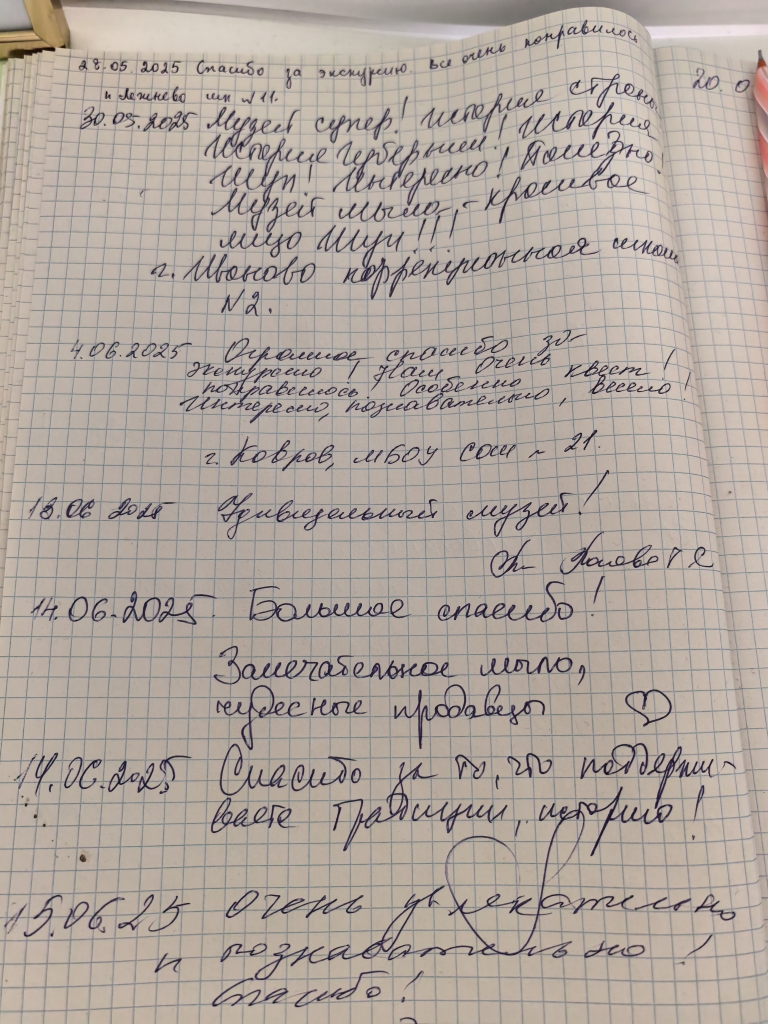 28.05.2025 Спасибо за экскурсию. Все очень понравилось
п Лежнево шк №11.
30.05.2025 Музей супер! История страны
История губернии! История
Шуи! Интересно! Полезно!
Музей мыла - красивое
лицо Шуи!!!
г. Иваново коррекционная школа
N2.
4.06.2025 Огромное спасибо за
экскурсию! Нам очень
понравилось! Особенно квест!
Интересно, познавательно, весело!
г. Ковров, МБОУ СОШ ~ 21.
13.06 2025 Удивительный музей!
14.06.2025. Большое спасибо!
Замечательное мыло,
чудесные продавцы
14.06.2025 Спасибо за то, что поддержи-
ваете традиции, историю!
15.06.25 Очень увлекательно
и познавательно!
Спасибо!
20.0